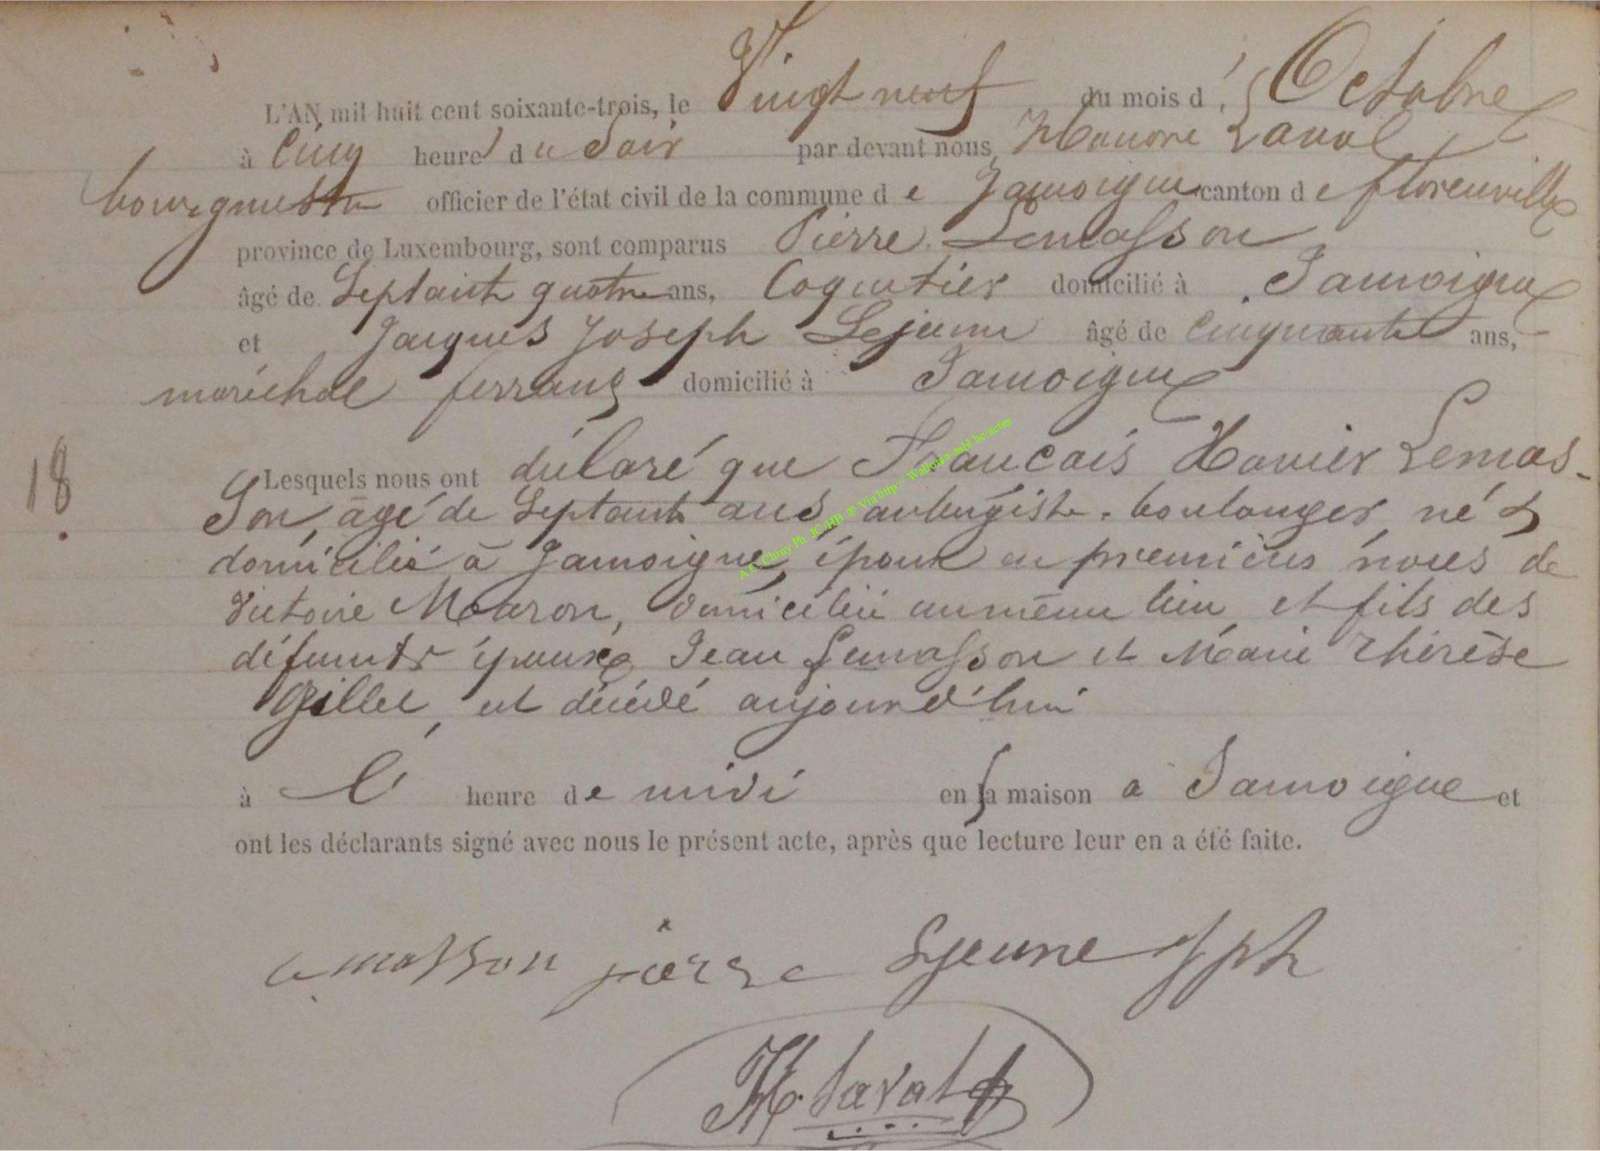 L'AN mil huit cent soixante-trois, le Vingt neuf du mois d' Octobre
à Cinq heure du Soir par devant nous Honoré Laval
bourgmestre officier de l'état civil de la commune de Jamoigne canton de florenville
province de Luxembourg, sont comparus Pierre Lemasson
âgé de Septante quatre ans, Coquetier domicilié à Jamoigne
et Jacques Joseph Lejeune âgé de Cinquante ans,
maréchal ferrant domicilié à Jamoigne
18. Lesquels nous ont déclaré que Francais Xavier Lemas-
Son, âgé de Septante ans aubergiste. boulanger, né &
domicilié à Jamoigne, époux en premières noces de
Victoire domiciliée au même lieu, et fils des
défunts époux Jean Lemasson et Marie Thérèse
Gillet, est décédé aujourd'hui
à l' heure de midi en sa maison a Jamoigne et
ont les déclarants signé avec nous le présent acte, après que lecture leur en a été faite.
Lemasson pierre Lejeune Jph
H. Laval